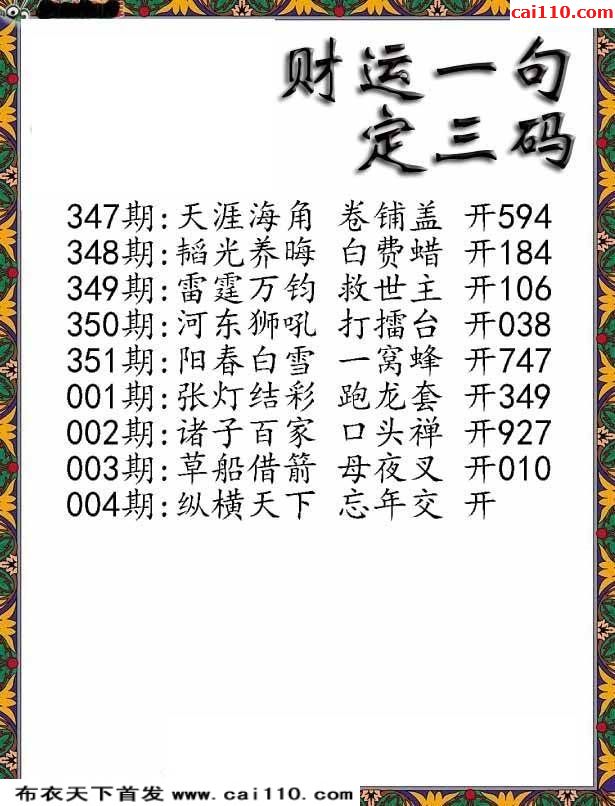 cai110.com
财运一句
定三码
347期:天涯海角 卷铺盖 开594
348期:韬光养晦 白费蜡 开184
349期:雷霆万钧 救世主 开106
350期:河东狮吼 打擂台 开038
351期:阳春白雪 一窝蜂 开747
001期:张灯结彩 跑龙套 开349
002期:诸子百家 口头禅 开927
003期:草船借箭 母夜叉 开010
004期:纵横天下 忘年交 开
布衣天下首发 www.cai110.com